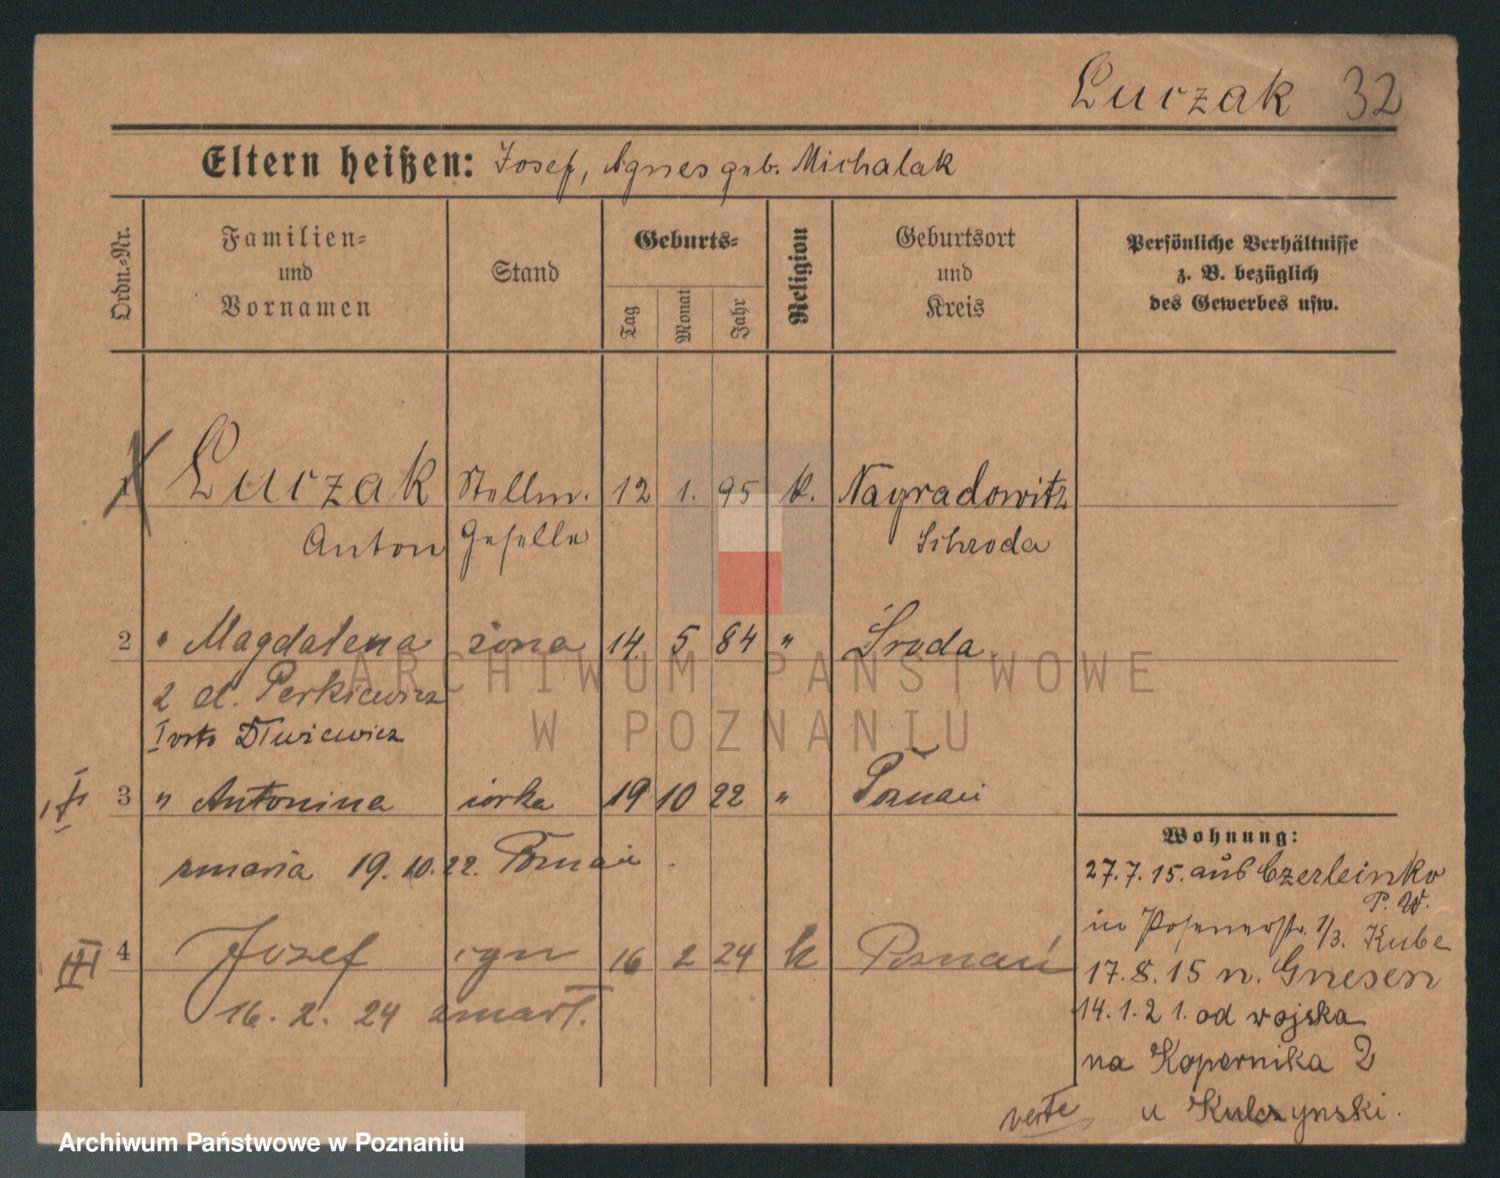 Luczak 32
Eltern heißen: Josef, Agnes geb. Michalak
Ordn.-Nr.
Familien-
und
Vornamen
Stand
Geburts-
Tag
Monat
Jahr
Religion
Geburtsort
und
Kreis
Persönliche Verhältnisse
z. B. bezüglich
des Gewerbes usw.
1 Luczak Stellm. 12 1. 95 k. Nagradowitz
Anton Geselle Schroda
2 " Magdalena żona 14. 5 84 " Środa
2 el. Perkiewicz
I voto Dłuiewicz
3 " Antonina córka 19 10 22 " Poznań
zmarła 19. 10. 22. Poznań
4 Jozef syn 16 2 24 k Poznań
16. 2. 24 zmarł.
Wohnung:
27. 7. 15. aus Czerleinko
P. W.
in Posenerstr. 1/3. Kube
17. 8. 15 n. Gnesen
14. 1. 21. od wojska
na Kopernika 2
u Kulczynski.
verte
ARCHIWUM PAŃSTWOWE
W POZNANIU
Archiwum Państwowe w Poznaniu